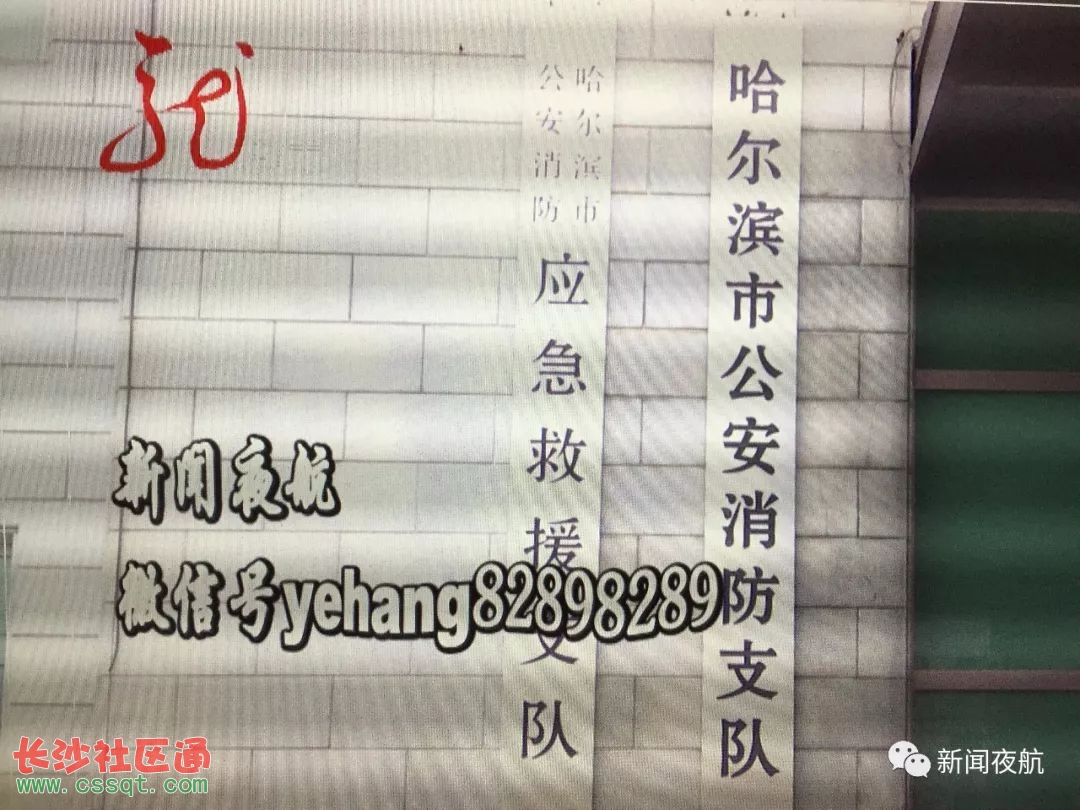 龙
哈尔滨市公安消防支队
哈尔滨市
公安消防
应急救援支队
新闻夜航
微信号yehang82898289
长沙社区通
www.cssqt.com
新闻夜航